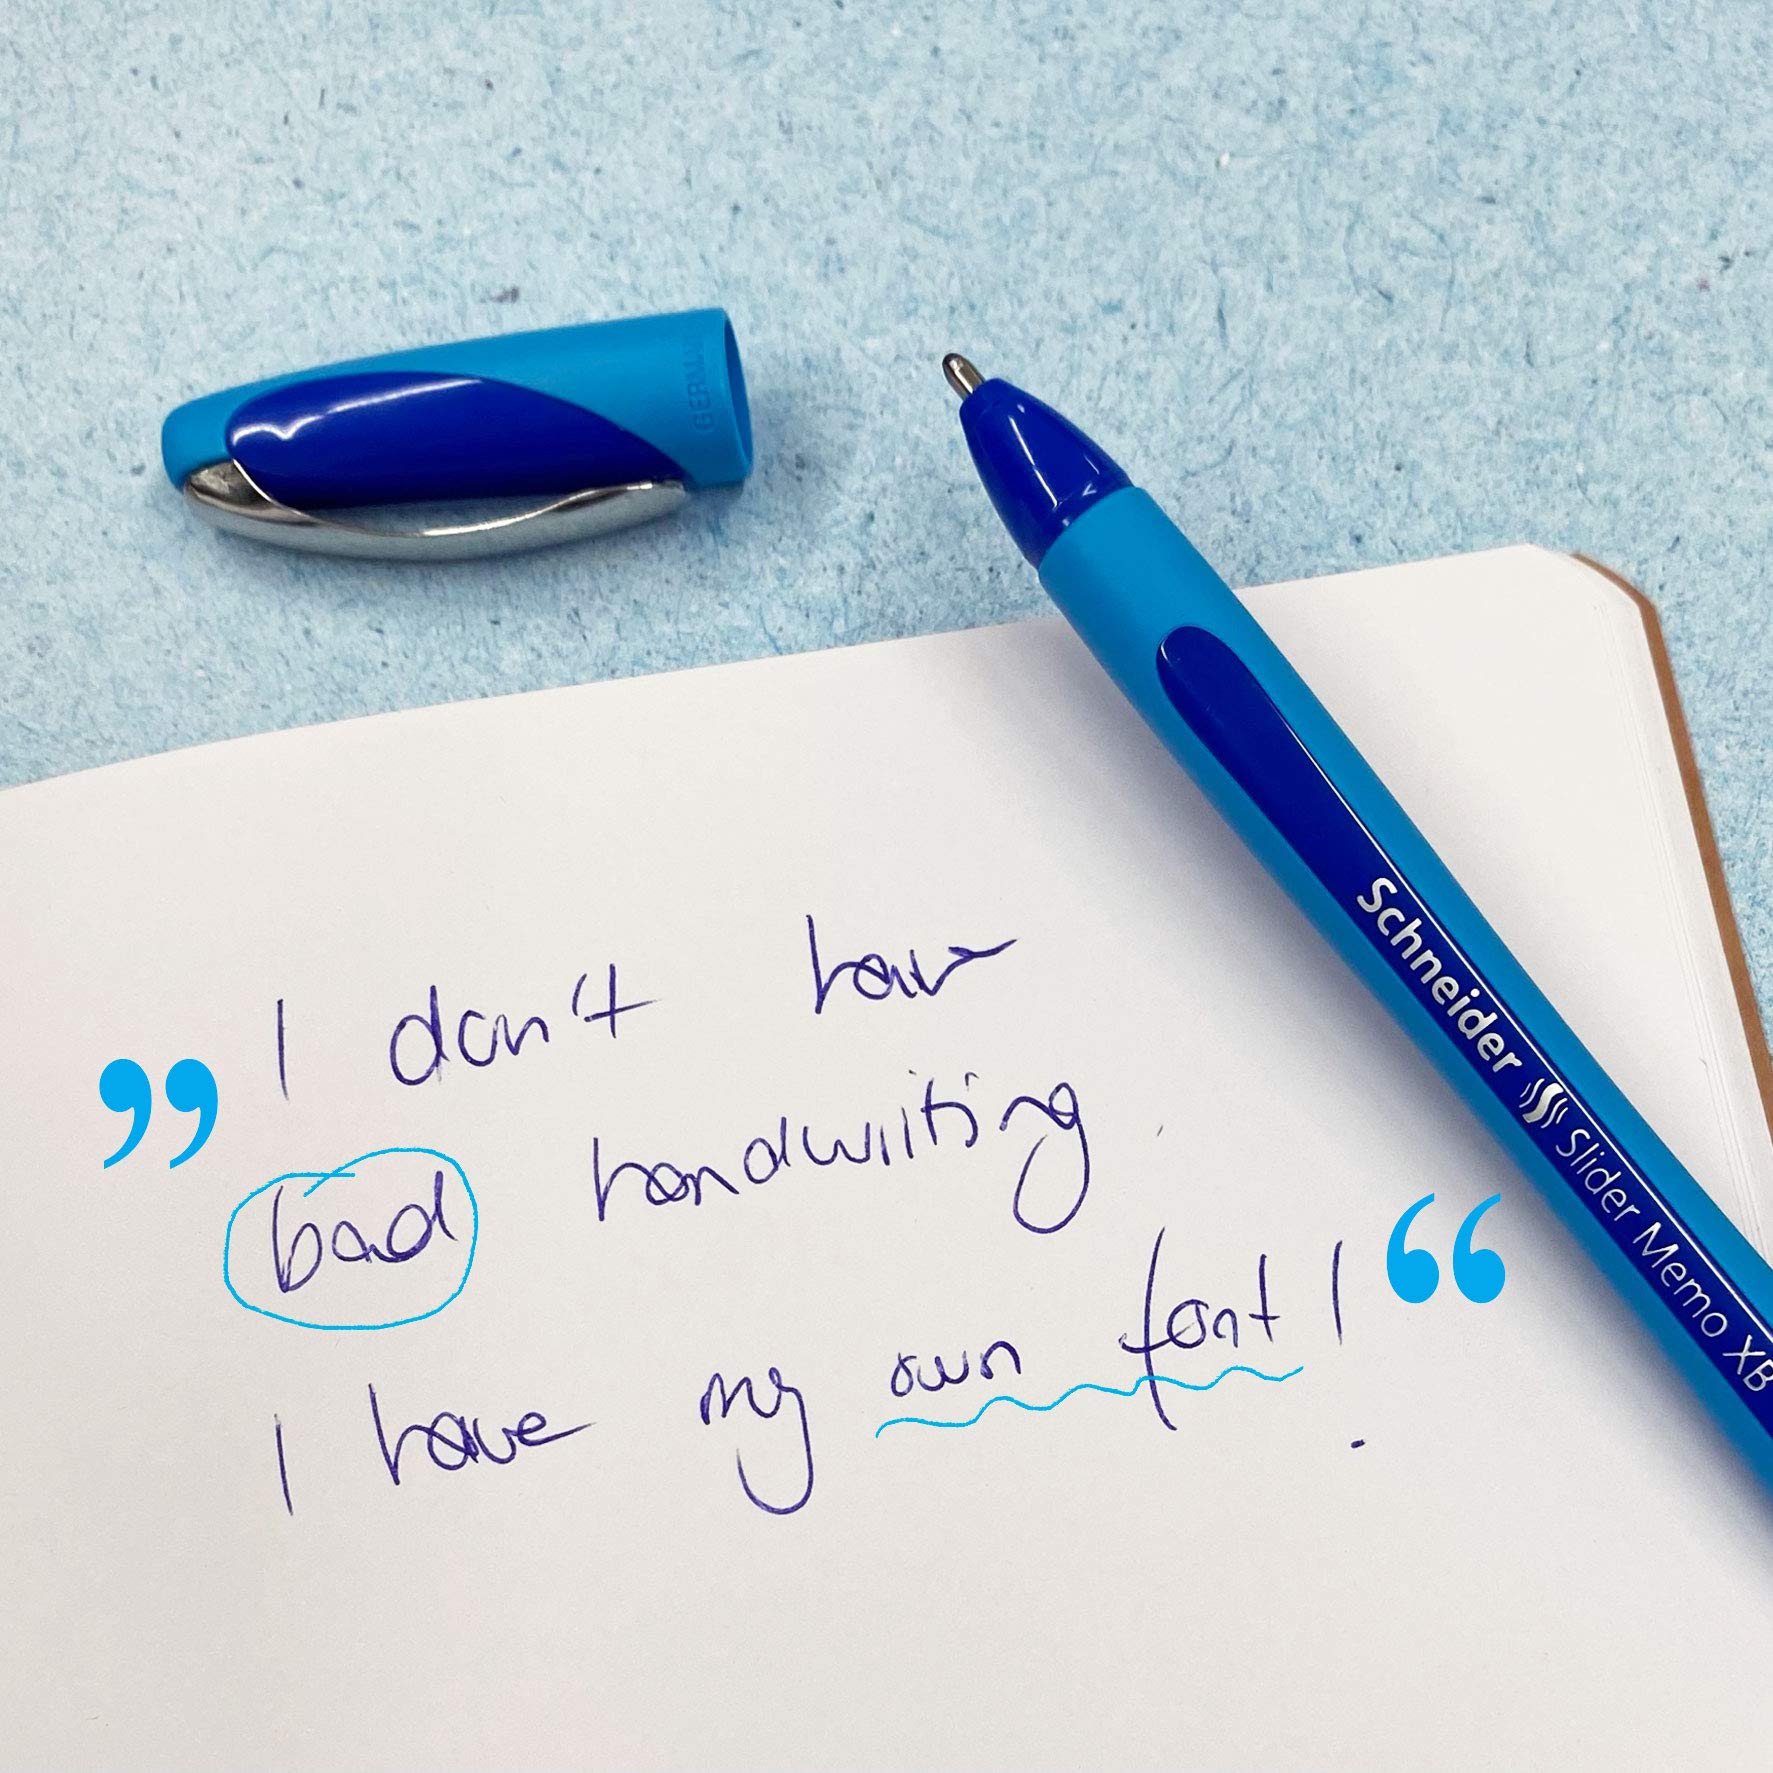 GERMA
”I don't have
bad handwriting
I have my own font!“
Schneider Slider Memo XB